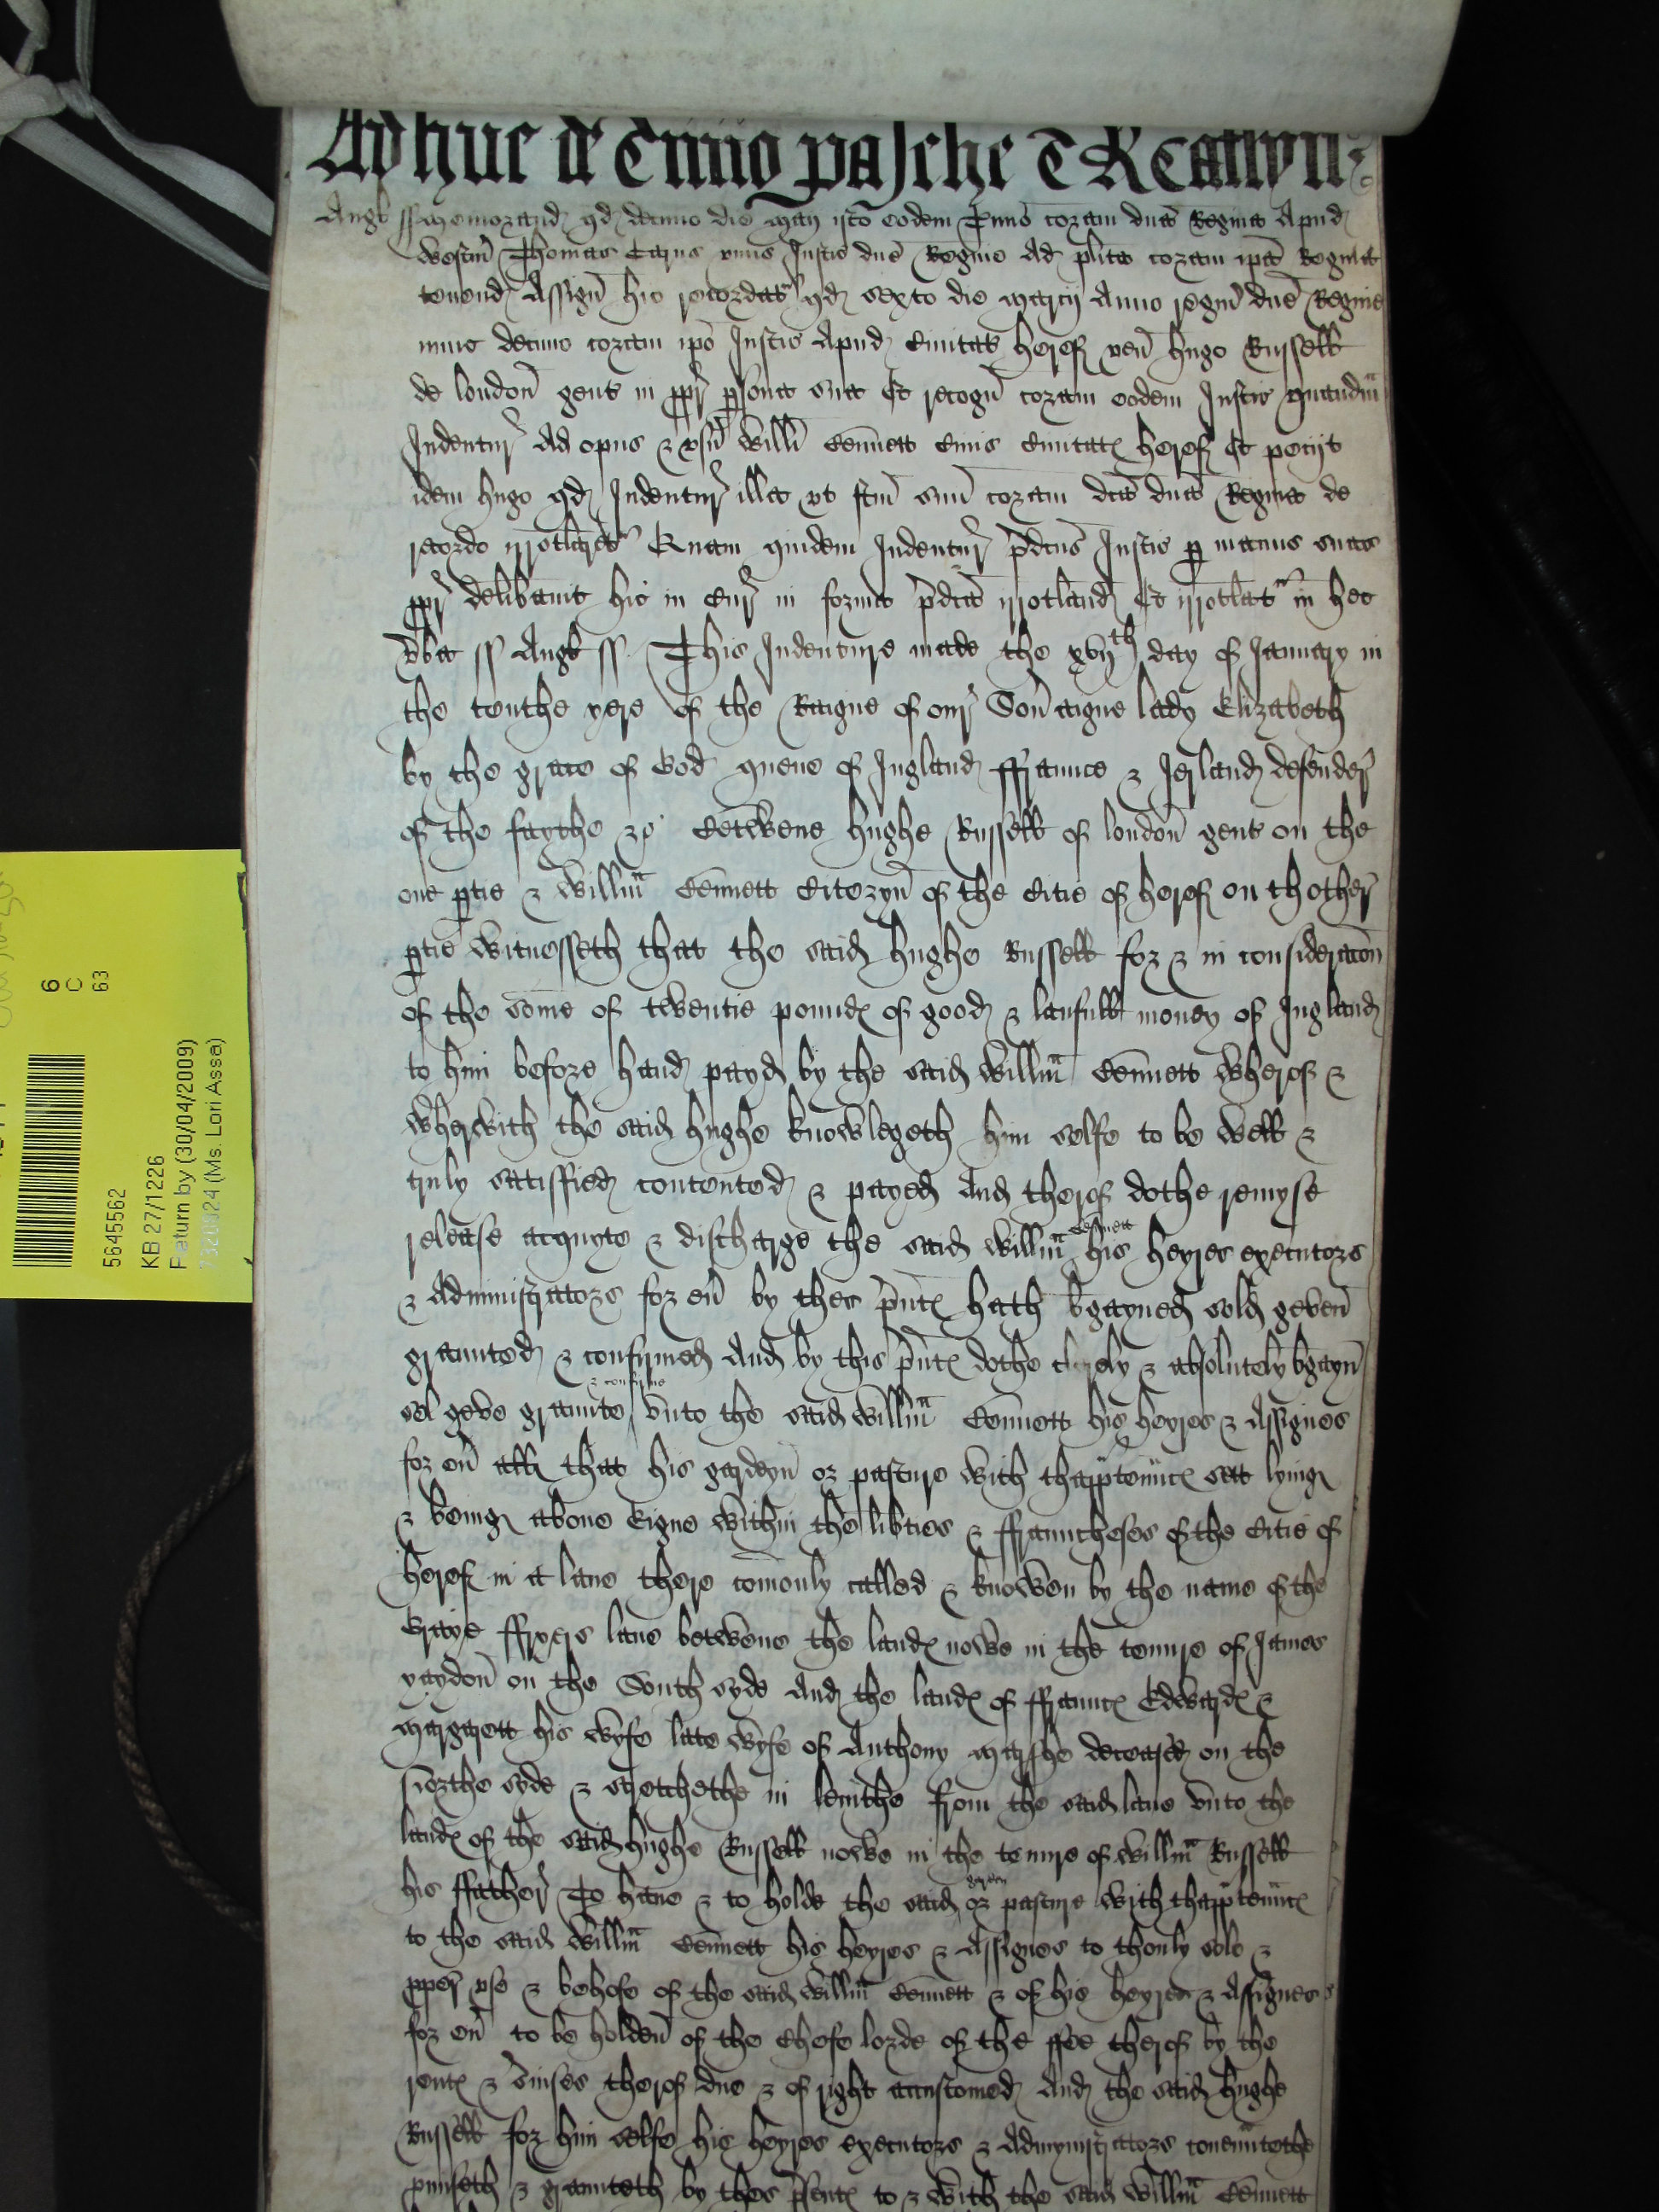 Adhuc de Tmio pasche T R Catlyn
Angl ss Memorand qd decimo die Maij isto eodem Tmio coram dna Regina Apud
Westm Thomas Carus unus Justic dne Regine Ad plita coram ipa Regina
tenend Assign hic recordat qd sexto die Marcij Anno regni dne Regine
nunc decimo coram ipo Justic Apud Civitat heref ven hugo Russell
de london gent in ppr psona sua Et recogn coram eodem Justic quandm
Indentur Ad opus & usu Willi Bennett Civis Civitatis heref Et petijt
idem hugo qd Indentur illa ut fcm suu coram dca dna Regina de
recordo irrotlaret Quam quidem Indentur pdcus Justic p manus suas
ppr delibavit hic in Cur in forma pdca irrotland Et irrotlat in hec
vba ss Angl ss This Indenture made the xvijth day of January in
the tenthe yere of the Raigne of our Sovaigne lady Elizabeth
by the grace of God quene of Ingland ffraunce & Jerland defender
of the faythe &c Betwene hughe Russell of london gent on the
one ptie & Willm Bennett Citezyn of the Citie of heref on thother
ptie Witnesseth that the said hughe Russell for & in consideracon
of the some of twentie pounds of good & laufull money of Ingland
to him before hand payd by the said Willm Bennett wherof &
wherwith the said hughe knowlegeth him selfe to be well &
truly satisfied contented & payed And therof dothe remyse
release acquyte & discharge the said Willm Bennett his heyres executors
& Administrators for ev by thes pnts hath bgayned sold geven
graunted & confirmed And by this pnts dothe clerely & absolutely bgayn
sel geve graunte & confirme unto the said Willm Bennett his heyres & Assignes
for ev all that his gardeyn or pasture with thapptennces sett lying
& being above Eigne within the libties & ffrauncheses of the Citie of
heref in a lane there comonly called & knowen by the name of the
Graye ffryers lane betwene the lands nowe in the tenure of James
yaydon on the South syde And the lands of ffraunces Edwards &
Margarett his wyfe late wyfe of Anthony Marshe deceased on the
northe syde & stretchethe in lenithe from the said lane unto the
lands of the said hughe Russell nowe in the tenure of Willm Russell
his ffather To have & to holde the said garden or pasture with thapptennces
to the said Willm Bennett his heyres & Assignes to thonly sole &
pper use & behofe of the said Willm Bennett & of his heyres & Assignes
for ev to be holden of the Chefe lorde of the ffee therof by the
rents & svises therof due & of right accustomed And the said hughe
Russell for him selfe his heyres executors & Admynistrators covenntethe
pmiseth & graunteth by thes psents to & with the said Willm Bennett
6
C
63
5645562
KB 27/1226
Return by (30/04/2009)
(Ms. Lori Assa)